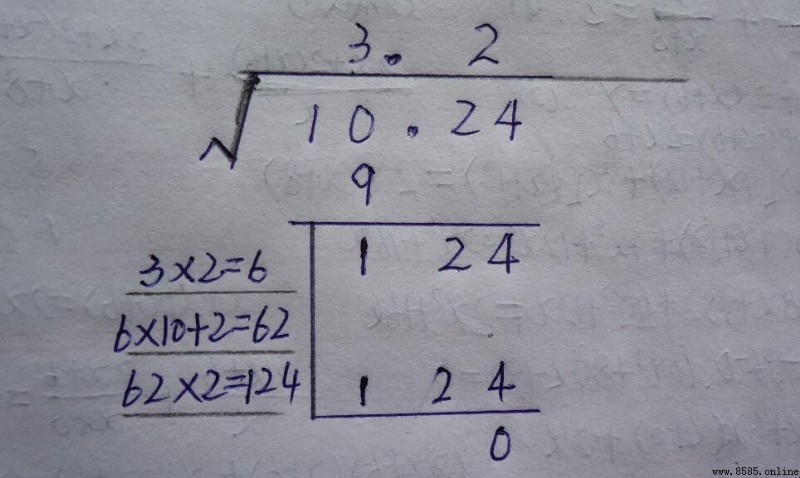 3. 2
√10.24
9
1 24
3×2=6
6×10+2=62
62×2=124
1 24
0
www.8585.online